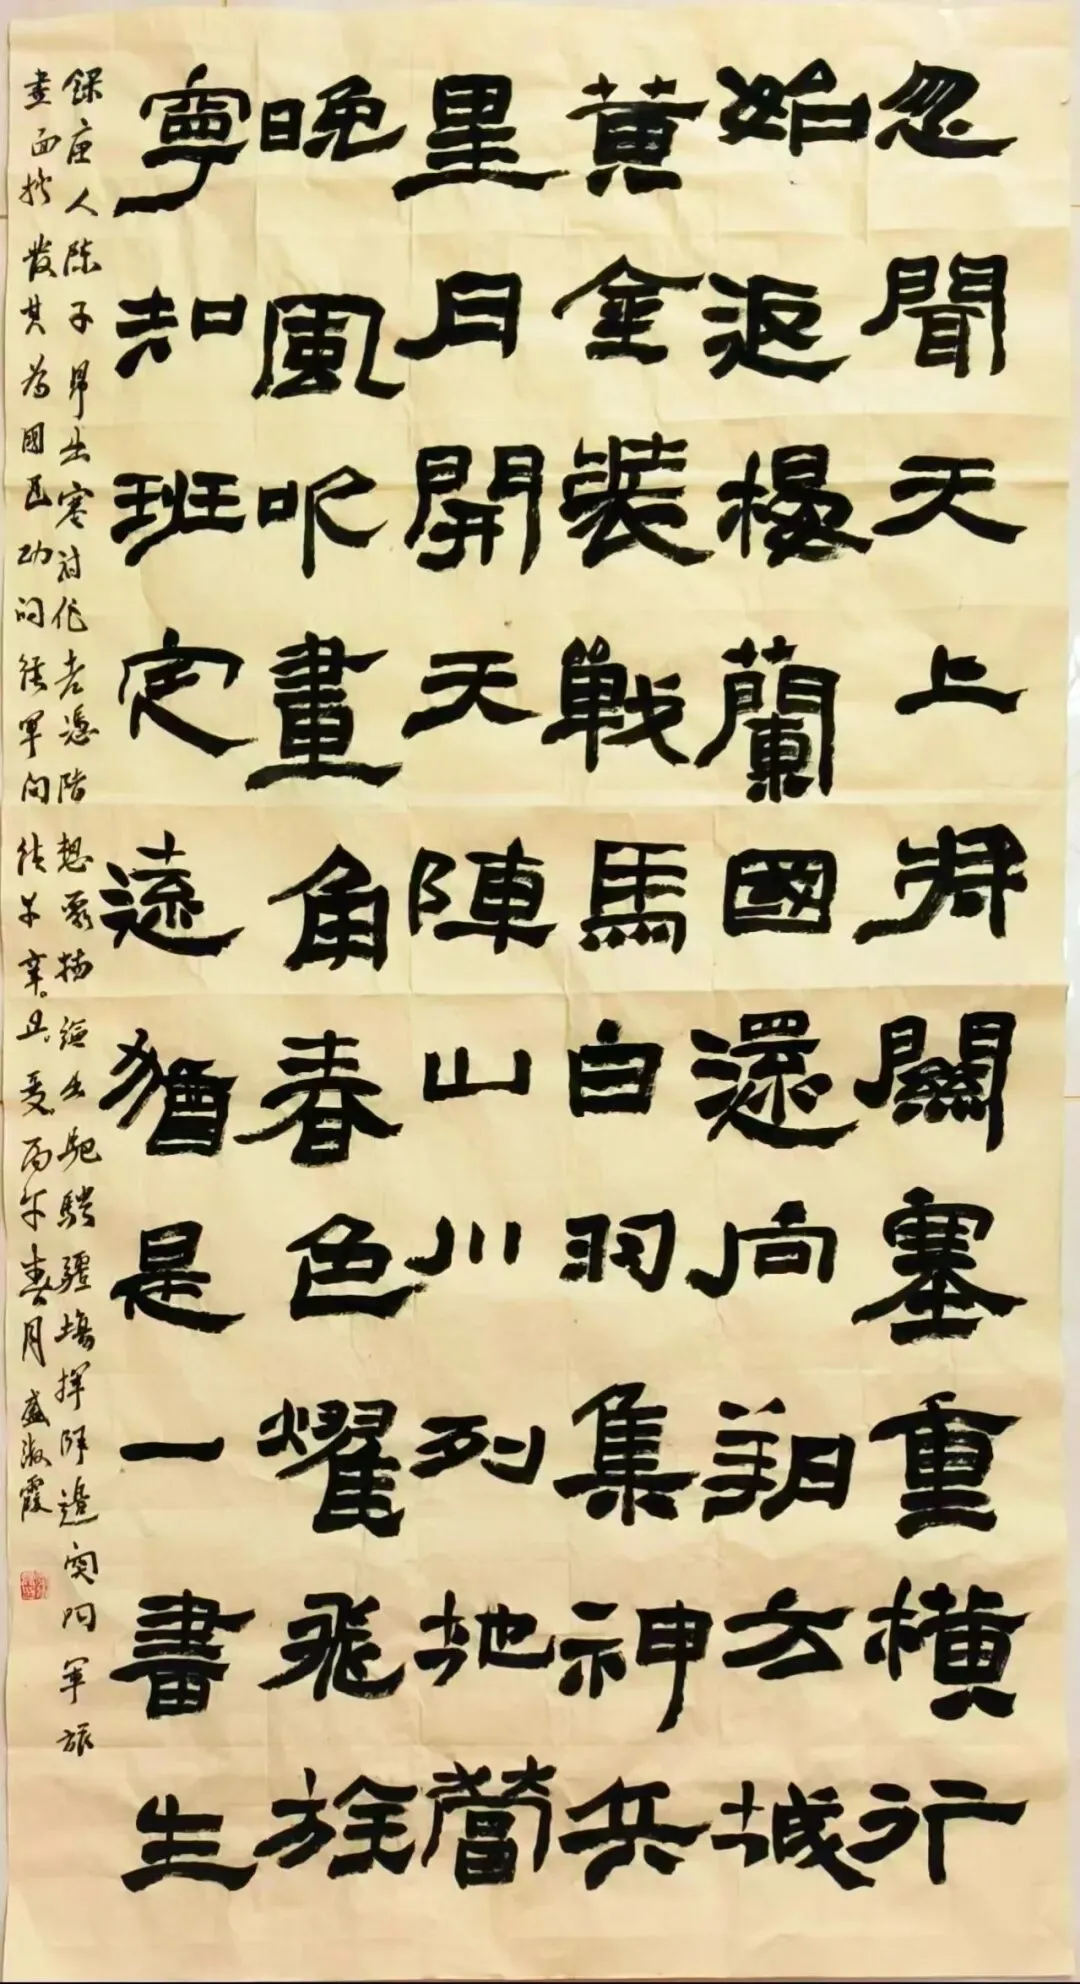 忽聞天上將關塞重橫行
始返樓蘭國還向朔方城
黃金裝戰馬白羽集神兵
星月開天陣山川列地營
晚風吹畫角春色耀飛旌
寧知班定遠猶是一書生
錄唐人陳子昂出塞詩作者憑階想象描繪了馳騁疆場揮師邊的軍旅
畫面抒發其為國立功的從軍向往 丙午春月盛淑霞